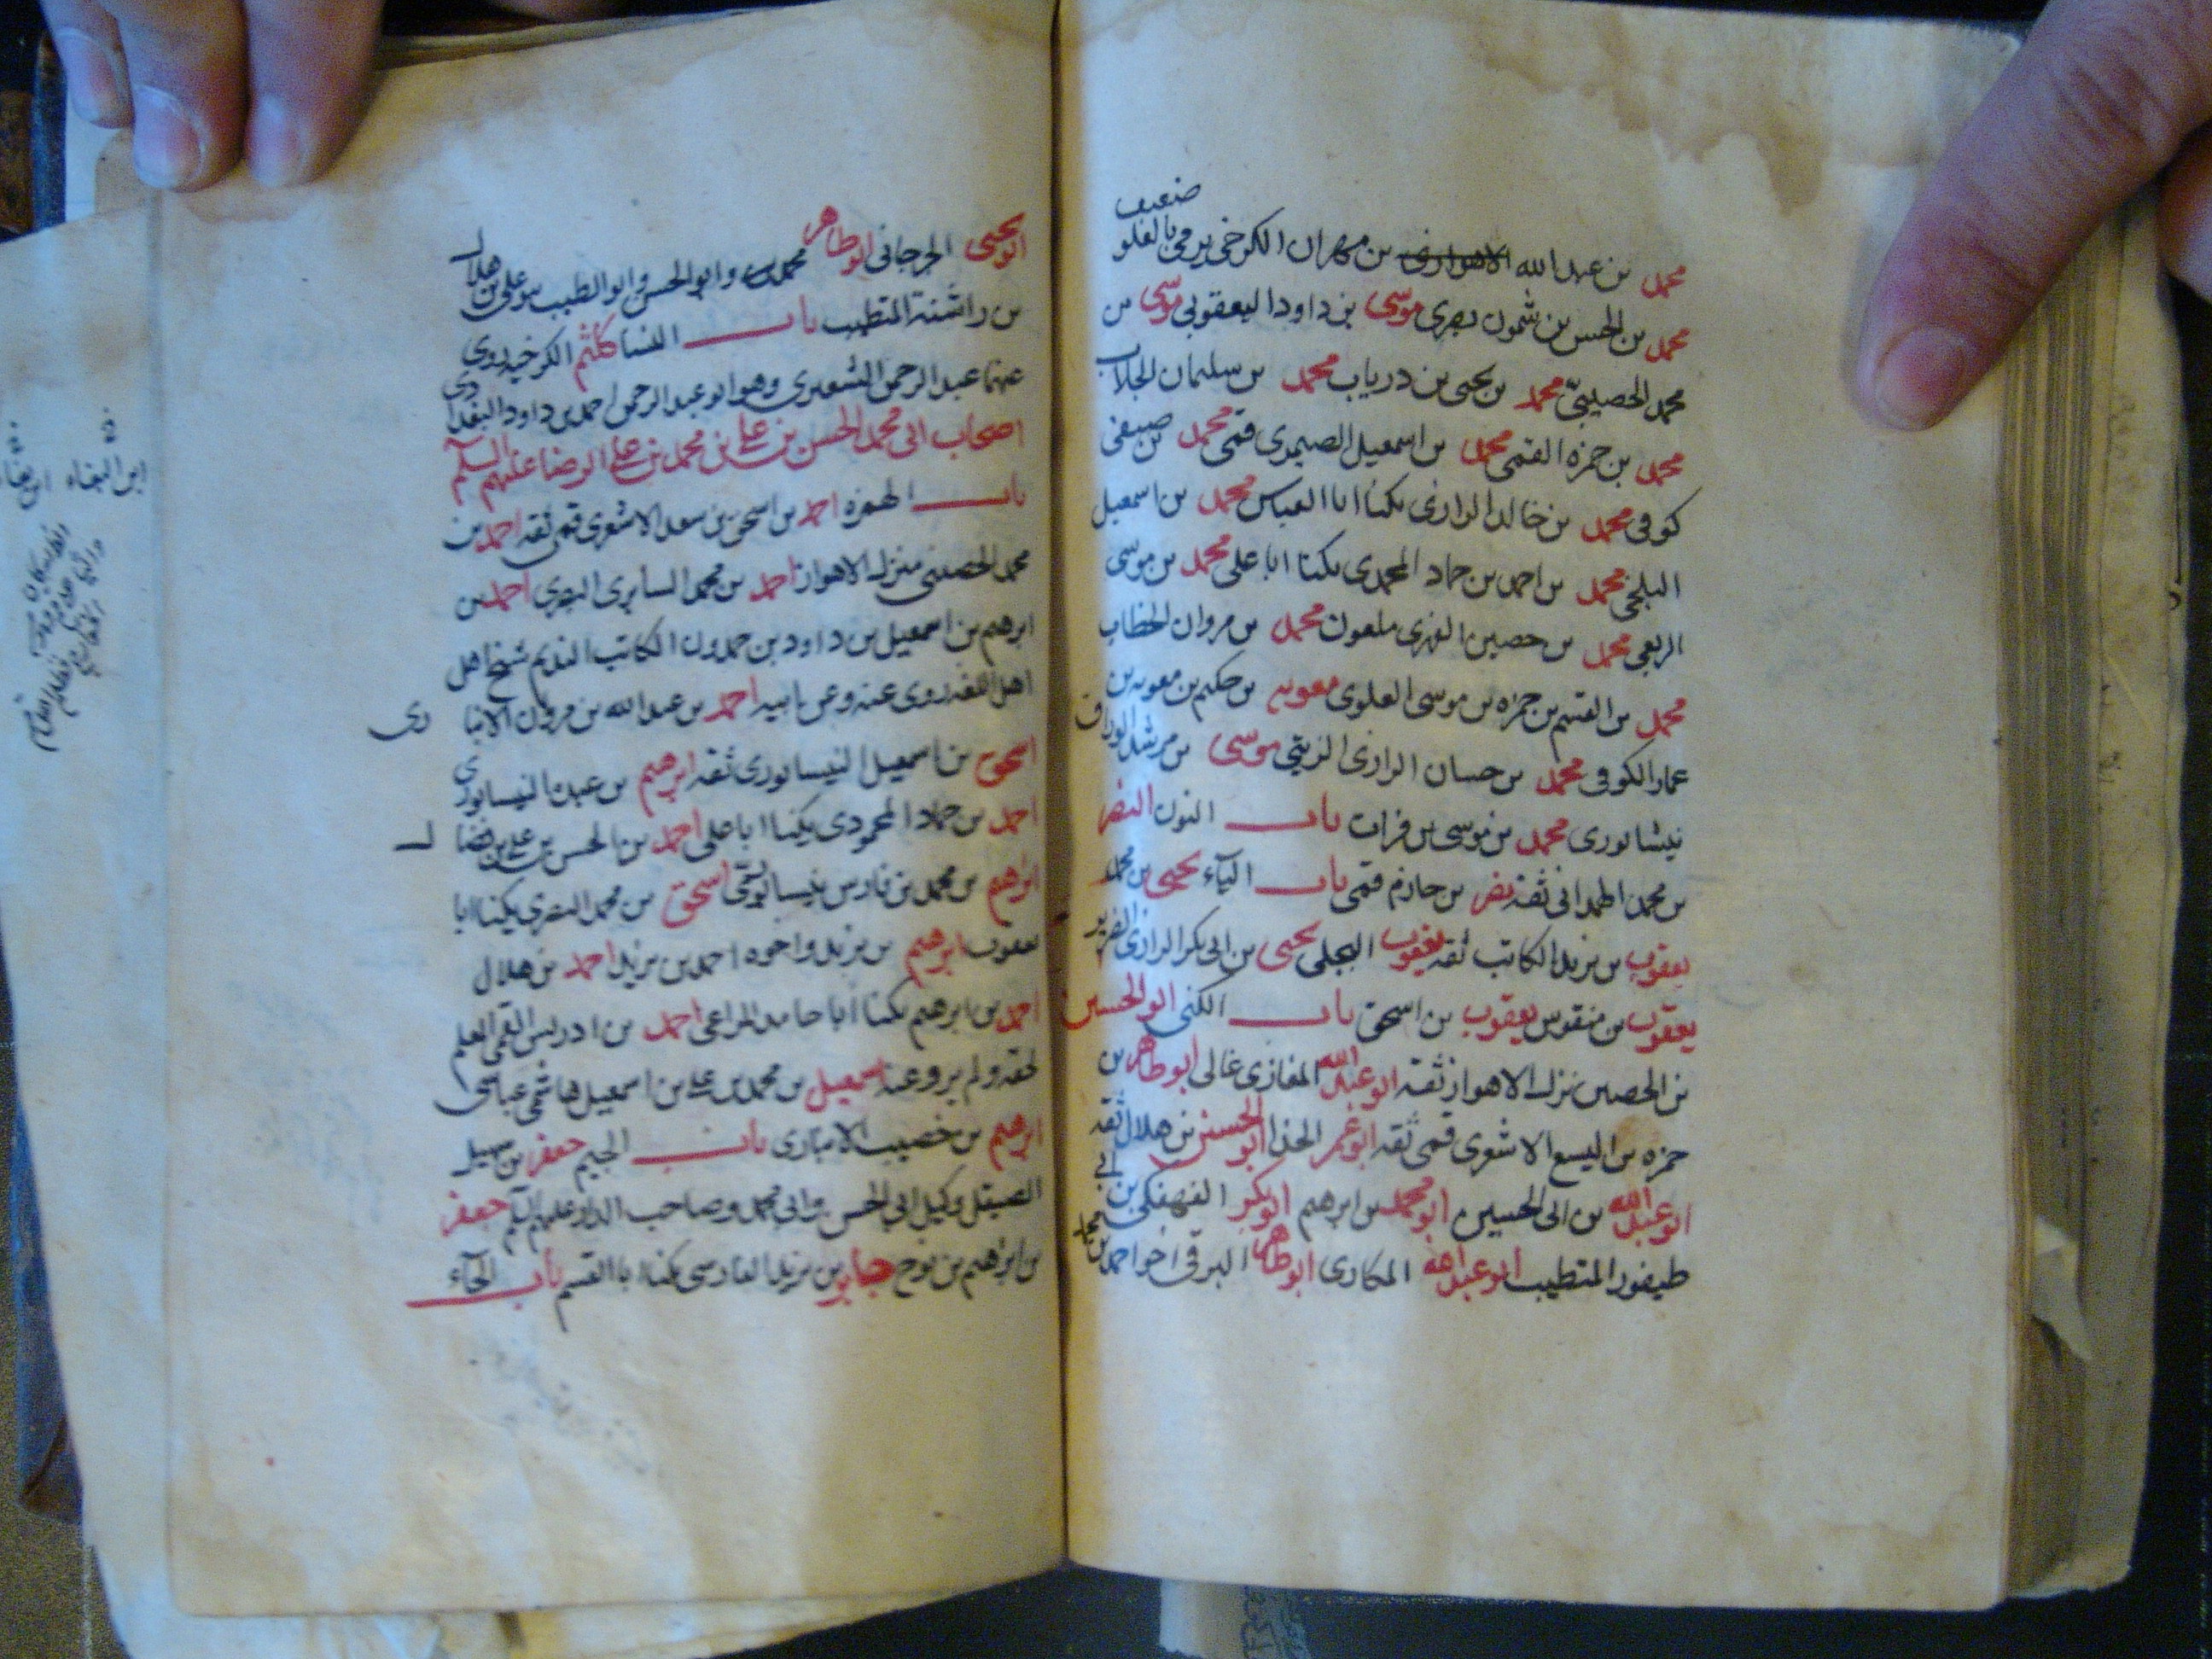 محمد بن عبدالله الاهوازى بن مهران الكرخى يرمى بالغلو
ضعيف
محمد بن الحسن بن شمون بصرى موسى بن داود اليعقوبى موسى بن
محمد الحصينى محمد بن يحيى بن درياب محمد بن سليمان الجلاب
محمد بن حمزه القمى محمد بن اسمعيل الصيمرى قمى محمد بن صيفى
كوفى محمد بن خالد الرازى يكنا ابا العباس محمد بن اسمعيل
البلخى محمد بن احمد بن حماد المحمدى يكنا ابا على محمد بن موسى
الربعى محمد بن حصين الفهرى ملعون محمد بن مروان الخطاب
محمد بن القسم بن حمزه بن موسى العلوى معويه بن حكيم بن معويه بن
عمار الكوفى محمد بن حسان الرازى الزيتى موسى بن مرشد الوراق
نيشابورى محمد بن موسى بن فرات باب النون النضر
بن محمد الهمدانى ثقة نضر بن حازم قمى باب الياء يحيى بن محمد
يعقوب بن يزيد الكاتب ثقه يعقوب البجلى يحيى بن ابى بكر الرازى الضرير
يعقوب بن منقوس يعقوب بن اسحق باب الكنى ابو الحسين
بن الحصين نزل الاهواز ثقة ابو عبدالله المغازى غالى ابو طاهر بن
حمزه بن اليسع الاشعرى قمى ثقه ابو عمر الحذا ابو الحسن بن هلال ثقه
ابو عبدالله بن ابى الحسين ابو محمد بن ابرهيم ابو بكر الفهفكى بن ابى
طيفور المتطبب ابو عبدالله المكارى ابو طاهر البرقى اخو احمد بن محمد
ابو يحيى الجرجانى ابو طاهر محمد وابو الحسن وابو الطيب بنو على بن هلال
بن راشنة المتطبب باب النسا كلثم الكرخيه روى
عنها عبد الرحمن الشعيرى وهو ابو عبد الرحمن احمد بن داود البغدادى
اصحاب ابى محمد الحسن بن على بن محمد بن على الرضا عليهم السلم
باب الهمزه احمد بن اسحق بن سعد الاشعرى قمى ثقه احمد بن
محمد الحصينى منزله الاهواز احمد بن محمد السايرى البصرى احمد بن
ابرهيم بن اسمعيل بن داود بن حمدون الكاتب النديم شيخ اهل
اهل اللغه روى عنه وعن ابيه احمد بن عبدالله بن مروان الانبارى
اسحق بن اسمعيل النيسابورى ثقه ابرهيم بن عبده النيسابورى
احمد بن حماد المحمودى يكنا ابا على احمد بن الحسن بن على بن فضال
ابرهيم بن محمد بن فارس نيسابورى اسحق بن محمد البصرى يكنا ابا
يعقوب ابرهيم بن يزيد واخوه احمد بن يزيد احمد بن هلال
احمد بن ابرهيم يكنا ابا حامد المراغى احمد بن ادريس القمى المعلم
لحقه ولم يرو عنه اسمعيل بن محمد بن على بن اسمعيل هاشمى عباسى
ابرهيم بن خصيب الانبارى باب الجيم جعفر بن سهيل
الصيقل وكيل ابى الحسن وابى محمد وصاحب الدار عليهم السلم جعفر
بن ابراهيم بن نوح جابر بن يزيد الفارسى يكنا ابا القسم باب الحاء